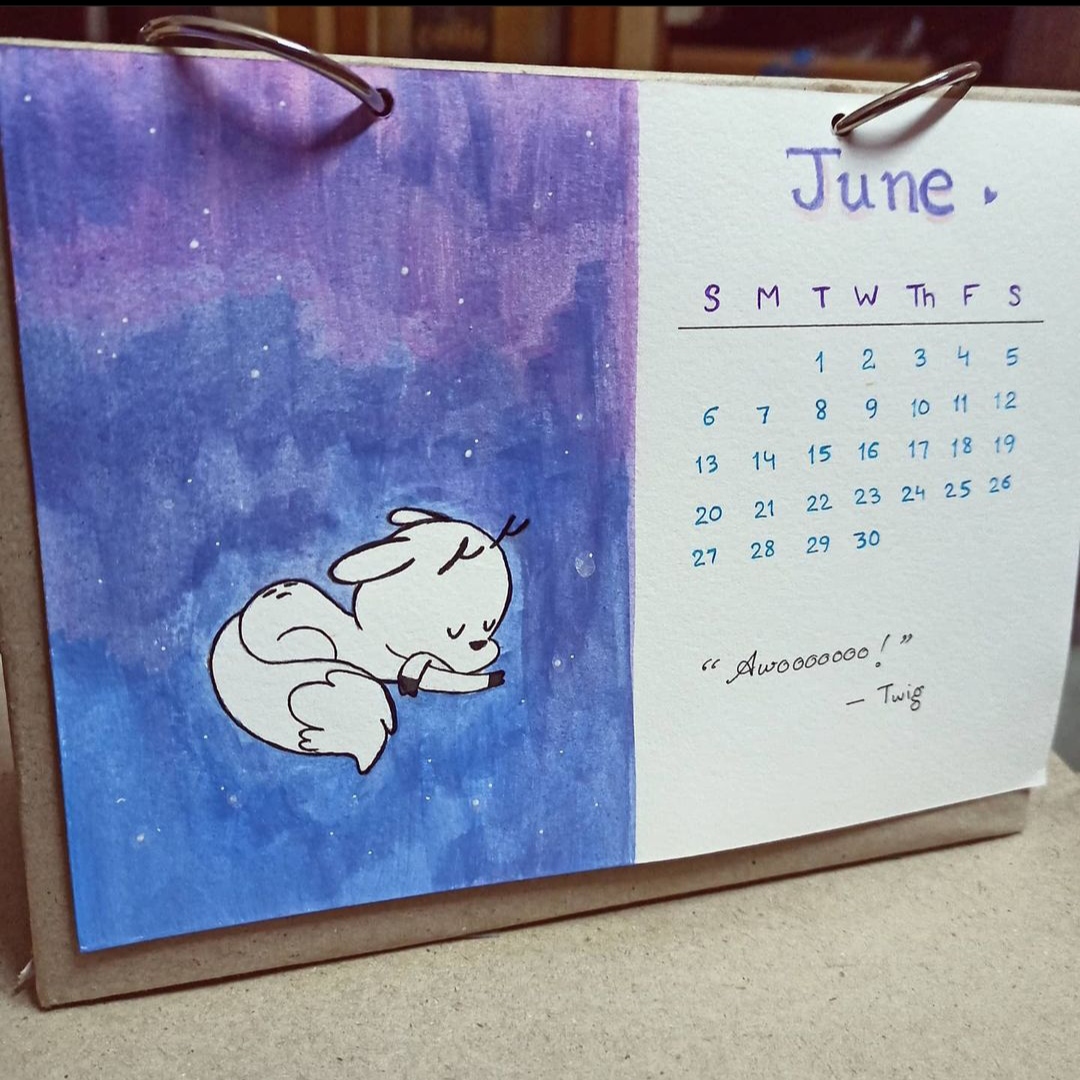 June
S M T W Th F S
1 2 3 4 5
6 7 8 9 10 11 12
13 14 15 16 17 18 19
20 21 22 23 24 25 26
27 28 29 30
“Awooooooo!”
— Twig